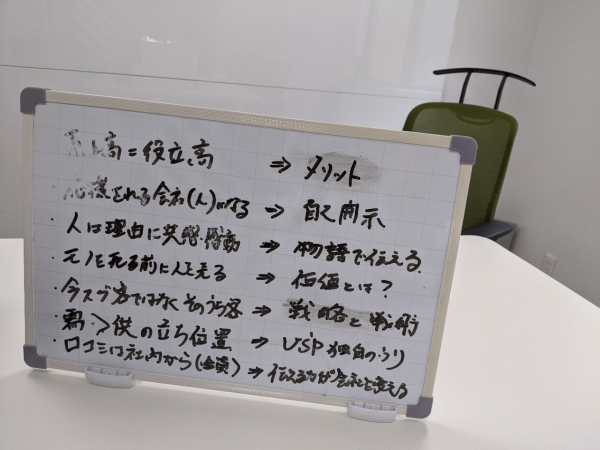 売上高=役立高 ⇒ メリット
・応援される会社(人)になる ⇒ 自己開示
・人は理由に共感・感動 ⇒ 物語で伝える
・モノを売る前に人を売る ⇒ 価値とは?
・今スグ客ではなくそのうち客 ⇒ 戦略と戦術
・君>僕の立ち位置 ⇒ USP 独自のウリ
・口コミは社内から(全員) ⇒ 伝える力が会社を変える